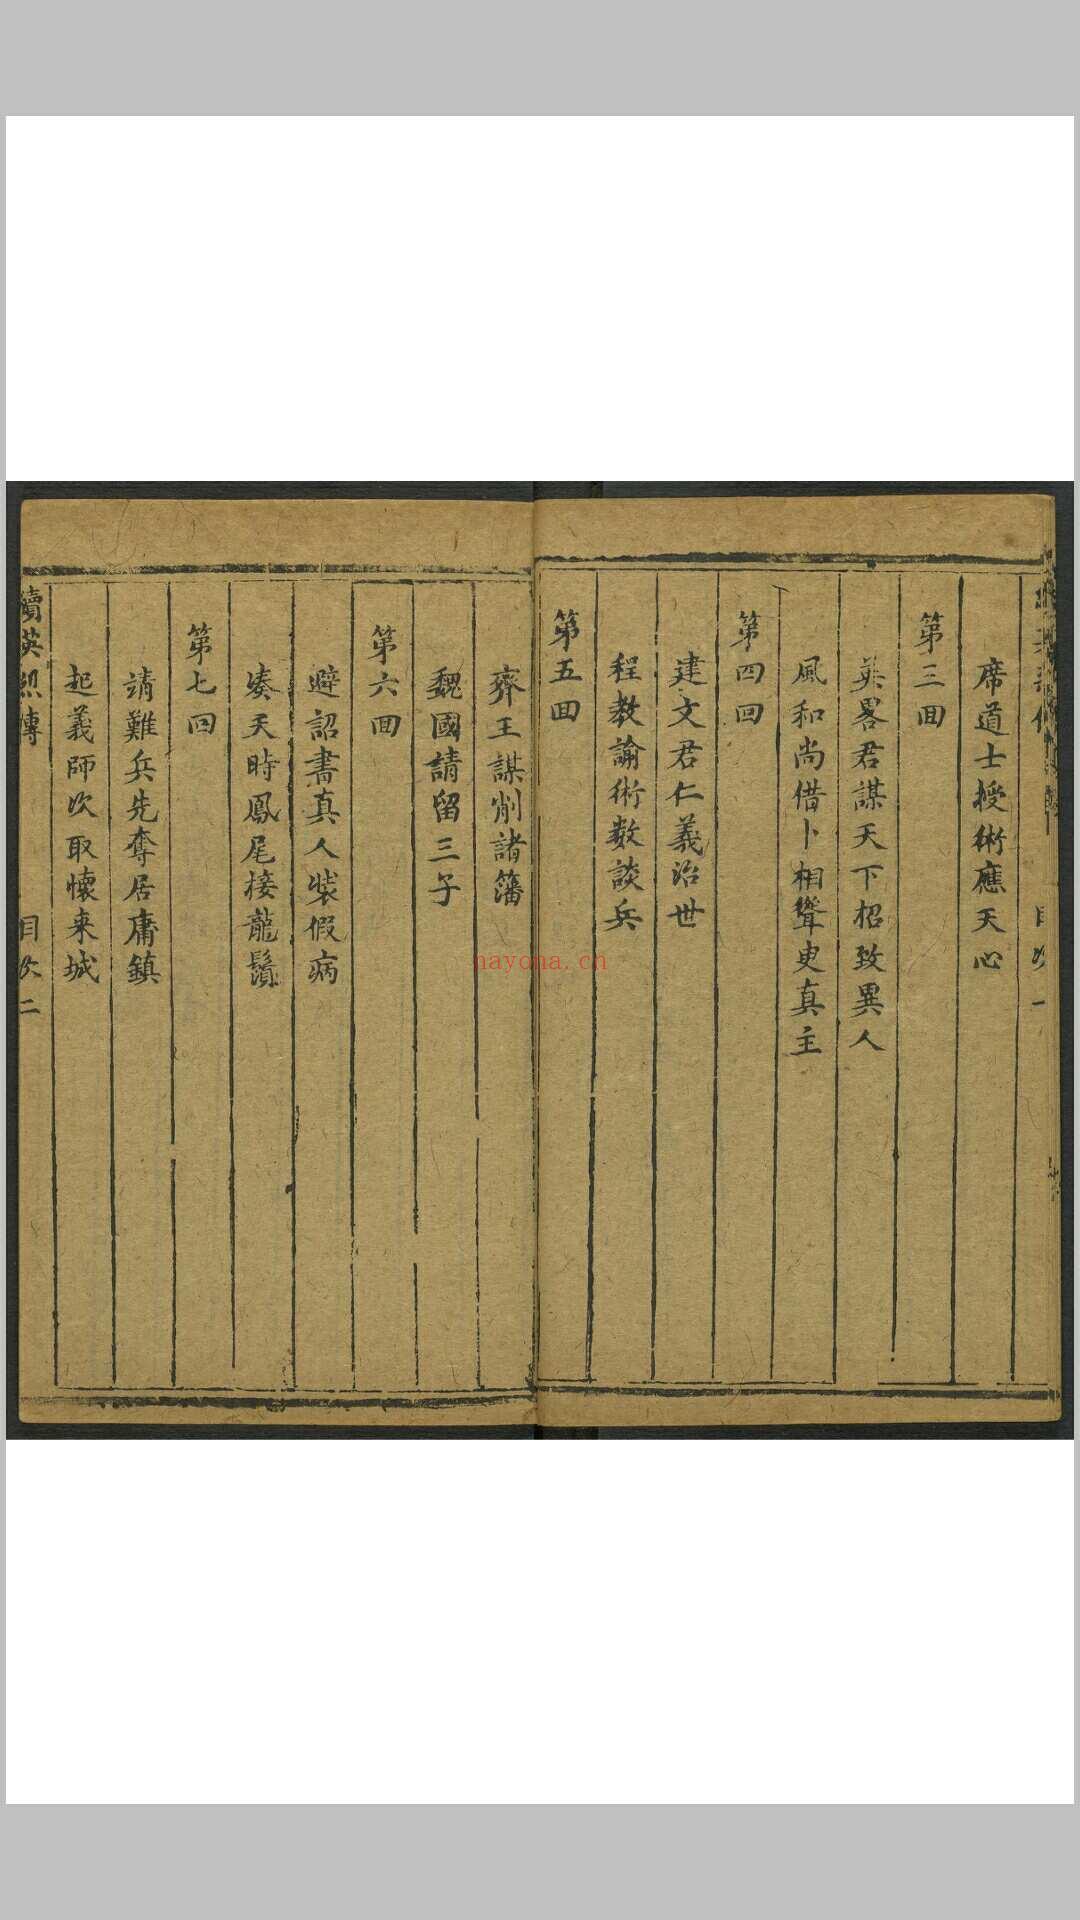 席道士授術應天心
第三回
英畧君謀天下招致異人
風和尚借卜相聳史真主
第四回
建文君仁義治世
程教諭術数談兵
第五回
齊王謀削諸籓
魏國請留三子
第六回
避詔書真人裝假病
凑天時鳳尾接龍鬚
第七回
靖難兵先奪居庸鎮
起義師次取懷来城
續英烈傳
目次二
nayona.cn